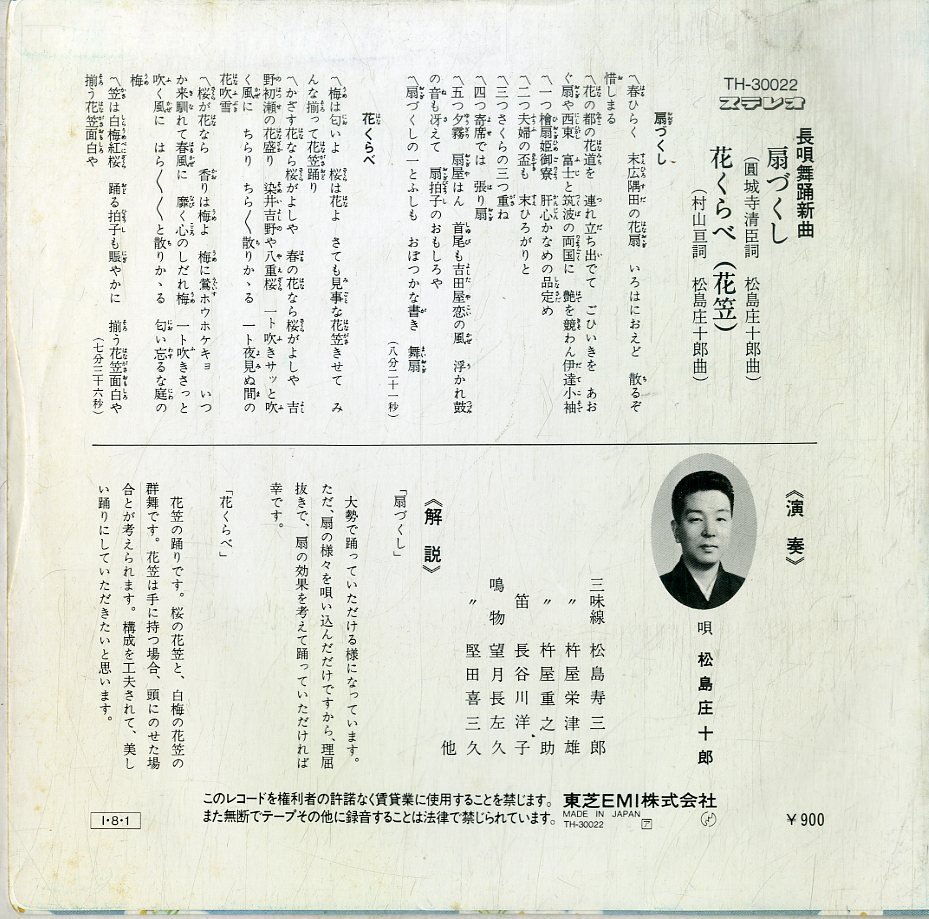 TH-30022
ステレオ
長唄舞踊新曲
扇づくし
(圓城寺清臣詞 松島庄十郎曲)
花くらべ(花笠)
(村山亘詞 松島庄十郎曲)
扇づくし
〽春ひらく 末広隅田の花扇 いろはにおえど 散るぞ
惜しまる
〽花の都の花道を 連れ立ち出でて ごひいきを あお
ぐ扇や西東 富士と筑波の両国に 艶を競わん伊達小袖
〽一つ檜扇姫御寮 肝心かなめの品定め
〽二つ夫婦の盃も 末ひろがりと
〽三つさくらの三つ重ね
〽四つ寄席では 張り扇
〽五つ夕霧 扇屋はん 首尾も吉田屋恋の風 浮かれ鼓
の音も冴えて 扇拍子のおもしろや
〽扇づくしの一とふしも おぼつかな書き 舞扇
(八分二十一秒)
花くらべ
〽梅は匂いよ 桜は花よ さても見事な花笠きせて み
んな揃って花笠踊り
〽かざす花なら桜がよしや 春の花なら桜がよしや 吉
野初瀬の花盛り 染井吉野や八重桜 一ト吹きサッと吹
く風に ちらり ちら〳〵散りかゝる 一ト夜見ぬ間の
花吹雪
〽桜が花なら 香りは梅よ 梅に鶯ホウホケキョ いつ
か来馴れて春風に 靡く心のしだれ梅 一ト吹きさっと
吹く風に はら〳〵〳〵と散りかゝる 匂い忘るな庭の
梅
〽笠は白梅紅桜 踊る拍子も賑やかに 揃う花笠面白や
揃う花笠面白や
(七分三十六秒)
《演奏》
唄 松島庄十郎
三味線 松島寿三郎
〃 杵屋栄津雄
〃 杵屋重之助
笛 長谷川洋子
鳴物 望月長左久
〃 堅田喜三久
他
《解説》
「扇づくし」
大勢で踊っていただける様になっています。
ただ、扇の様々を唄い込んだだけですから、理屈
抜きで、扇の効果を考えて踊っていただければ
幸です。
「花くらべ」
花笠の踊りです。桜の花笠と、白梅の花笠の
群舞です。花笠は手に持つ場合、頭にのせた場
合とが考えられます。構成を工夫されて、美し
い踊りにしていただきたいと思います。
このレコードを権利者の許諾なく賃貸業に使用することを禁じます。
また無断でテープその他に録音することは法律で禁じられています。
東芝EMI株式会社
MADE IN JAPAN
TH-30022
ア
￥900
I・8・1